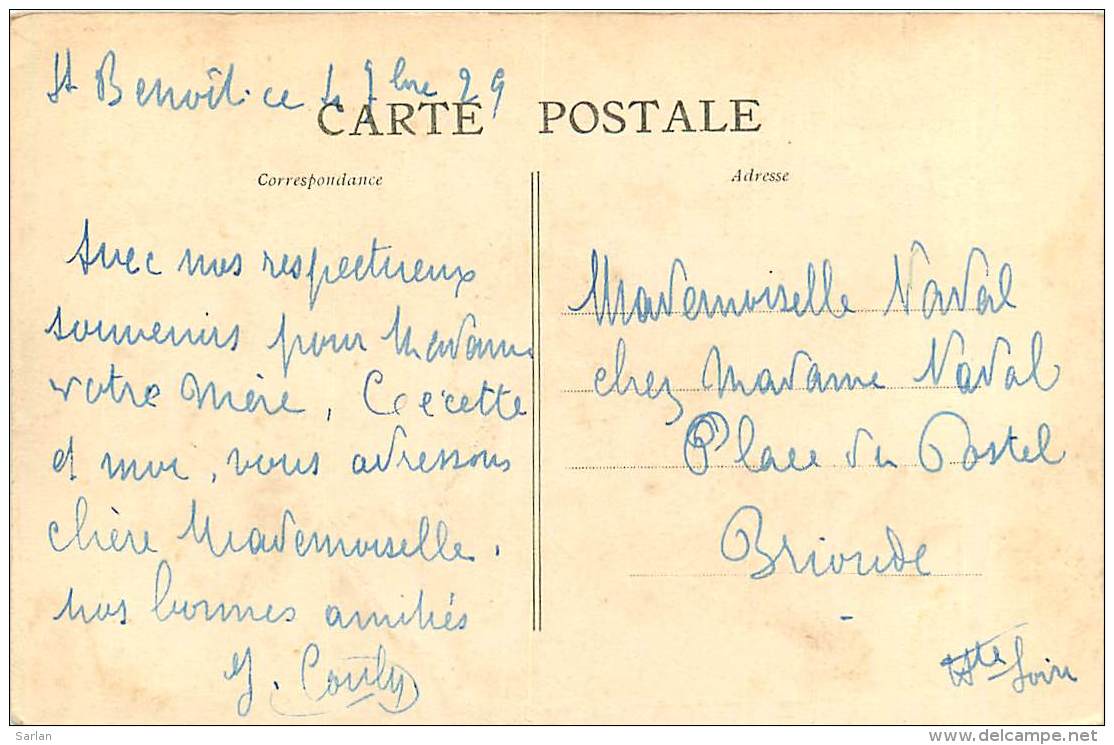 St Benoît. ce 4 7bre 29
CARTE POSTALE
Correspondance
Adresse
Avec nos respectueux
souvenirs pour Madame
votre Mère, Cécette
et moi, vous adressons
chère Mademoiselle,
nos bonnes amitiés
Mademoiselle Nadal
chez Madame Nadal
Place du Postel
Brioude
Hte Loire
Sarlan
delcampe.net